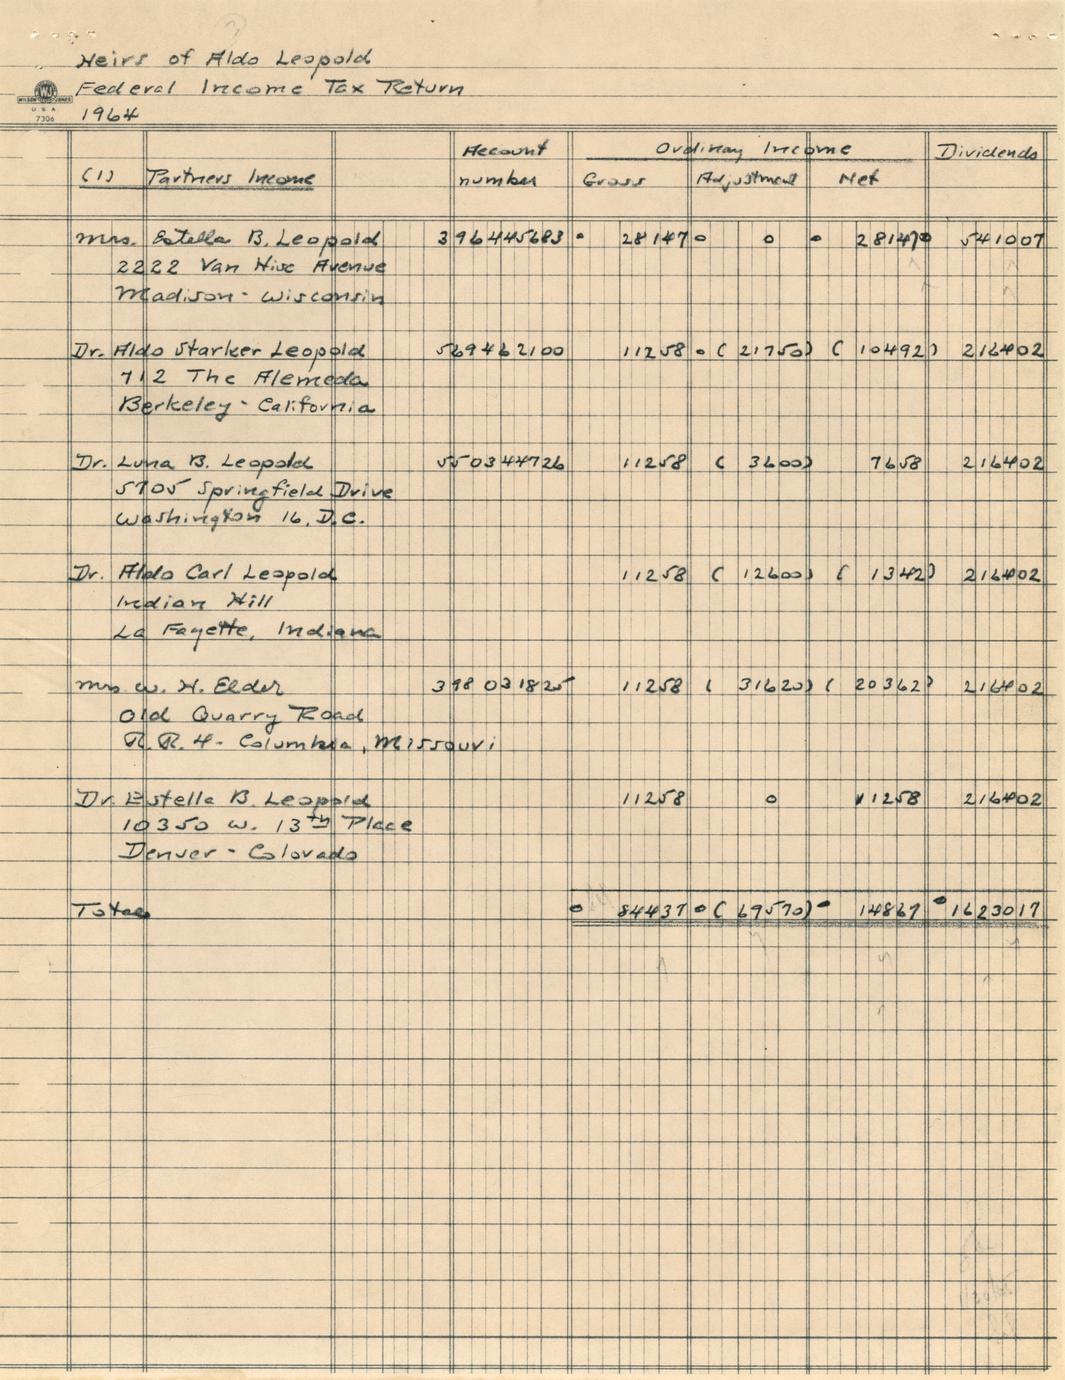 Heirs of Aldo Leopold
Federal Income Tax Return
1964
WJ
WILSON JONES
U S A
7306
Account Ordinay Income Dividends
(1) Partners Income number Gross Adjustment Net
Mrs. Estella B. Leopold 396445683 28147 0 28147 541007
2222 Van Hise Avenue
Madison - Wisconsin
Dr. Aldo Starker Leopold 569462100 11258 (21750) (10492) 216402
712 The Alemeda
Berkeley - California
Dr. Luna B. Leopold 550344726 11258 (3600) 7658 216402
5705 Springfield Drive
Washington 16, D.C.
Dr. Aldo Carl Leopold 11258 (12600) (1342) 216402
Indian Hill
La Fayette, Indiana
Mrs W. H. Elder 398031825 11258 (31620) (20362) 216402
Old Quarry Road
R.R. 4 - Columbia, Missouri
Dr Estella B. Leopold 11258 0 11258 216402
10350 W. 13th Place
Denver - Colorado
Totals 84437 (69570) 14867 1623017